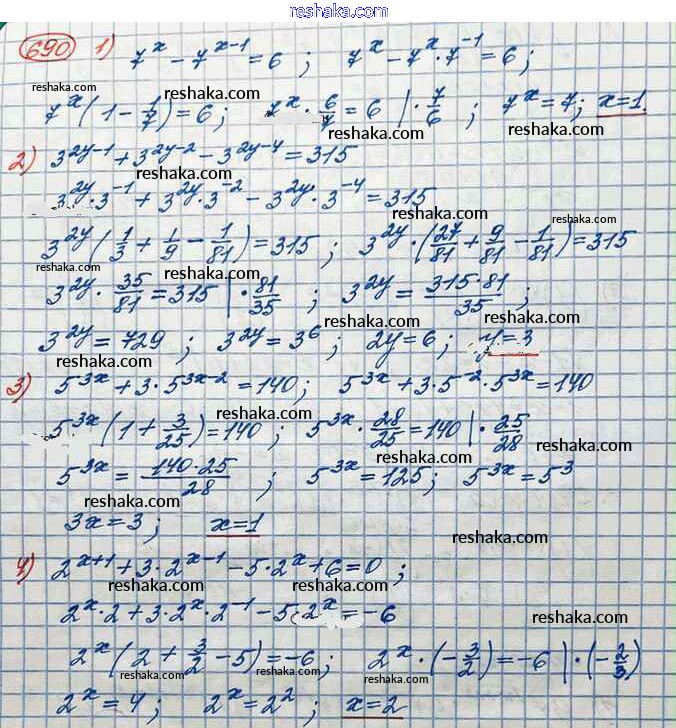 reshaka.com
690 1) 7^x − 7^(x−1) = 6 ; 7^x − 7^x · 7^(−1) = 6 ;
reshaka.com reshaka.com
reshaka.com reshaka.com reshaka.com
7^x (1 − 1/7) = 6 ; 7^x · 6/7 = 6 | · 7/6 ; 7^x = 7 ; x = 1
reshaka.com
2) 3^(2y−1) + 3^(2y−2) − 3^(2y−4) = 315
reshaka.com
3^(2y) · 3^(−1) + 3^(2y) · 3^(−2) − 3^(2y) · 3^(−4) = 315
reshaka.com reshaka.com
3^(2y) (1/3 + 1/9 − 1/81) = 315 ; 3^(2y) · (27/81 + 9/81 − 1/81) = 315
reshaka.com reshaka.com
3^(2y) · 35/81 = 315 | · 81/35 ; 3^(2y) = 315·81/35 ;
reshaka.com
3^(2y) = 729 ; 3^(2y) = 3^6 ; 2y = 6 ; y = 3
reshaka.com reshaka.com
3) 5^(3x) + 3 · 5^(3x−2) = 140 ; 5^(3x) + 3 · 5^(−2) · 5^(3x) = 140
reshaka.com
5^(3x) (1 + 3/25) = 140 ; 5^(3x) · 28/25 = 140 | · 25/28
reshaka.com reshaka.com
5^(3x) = 140·25/28 ; 5^(3x) = 125 ; 5^(3x) = 5^3
reshaka.com
3x = 3 ; x = 1
reshaka.com reshaka.com
4) 2^(x+1) + 3 · 2^(x−1) − 5 · 2^x + 6 = 0 ;
reshaka.com
2^x · 2 + 3 · 2^x · 2^(−1) − 5 · 2^x = −6
reshaka.com reshaka.com
2^x (2 + 3/2 − 5) = −6 ; 2^x · (−3/2) = −6 | · (−2/3)
reshaka.com reshaka.com
2^x = 4 ; 2^x = 2^2 ; x = 2
reshaka.com